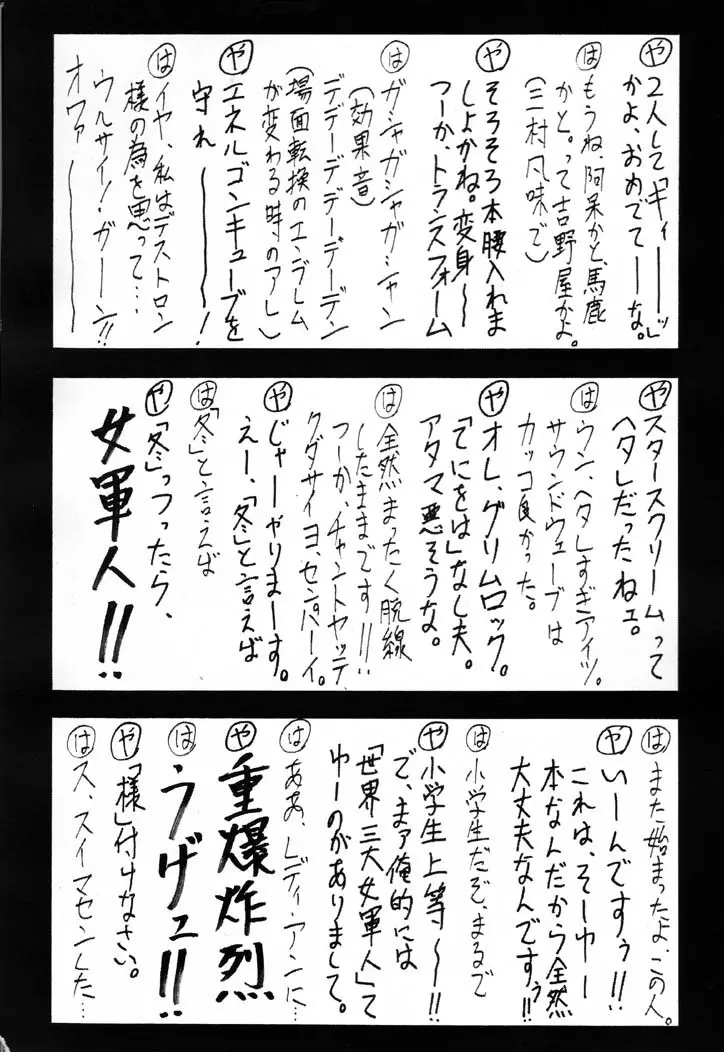 や 2人して「ギィーーーッ」
かよ、おめでてーーな。
は もうね、阿呆かと、馬鹿
かと。って吉野屋かよ。
(三村風味で)
や そろそろ本腰入れま
しょかね。変身〜
つーか、トランスフォーム
は ガシャガシャガシャン
(効果音)
デデデーデデデーデーデン
(場面転換のエンブレム
が変わる時のアレ)
や エネルゴンキューブを
守れーーーー!
は イヤ、私はデストロン
様の為を思って…
ウルサイ!ガーン!!
オワァーーーー
や スタースクリームって
ヘタレだったねェ。
は ウン、ヘタレすぎアイツ。
サウンドウェーブは
カッコ良かった。
や オレ、グリムロック。
「てにをは」なし夫。
アタマ悪そうな。
は 全然まったく脱線
したままです!!!
つーか、チャントヤッテ
クダサイヨ、センパーイ。
や じゃーやりまーす。
えー、「冬」と言えば
は 「冬」と言えば
や 「冬」っつったら、
女軍人!!
は また始まったよ、この人。
や いーんですぅ!!
これは、そーゆー
本なんだから全然
大丈夫なんですぅ!!
は 小学生だぞ、まるで
や 小学生上等〜!!
で、まァ俺的には
「世界三大女軍人」て
ゆーのがありまして。
は ああ、レディ・アンに…
や 重爆炸烈
は うげェ!!
や 「様」付けなさい。
は ス、スイマセンした…